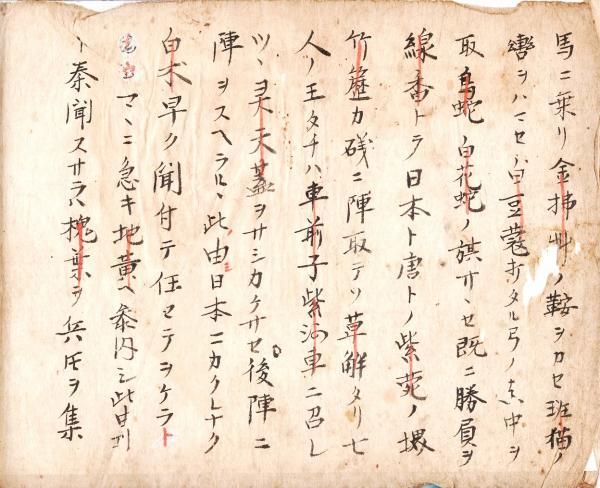 馬ニ乗リ金拂艸ノ鞍ヲカセ班猫ノ
轡ヲハマセハ白豆蔲打タル弓ノ真中ヲ
取烏蛇白花蛇ノ旗サヽセ既ニ勝負ヲ
線香トラ日本ト唐トノ紫菀ノ堺
竹蘆カ磯ニ陣取テソ草解タリ七
人ノ王タチハ車前子紫河車ニ召レ
ツヽ天蓋ヲサシカケサセ後陣ニ
陣ヲスヘラルヽ此由日本ニカクレナク
白朮早ク聞付テ任セテヲケラト
マヽニ急キ地黄ヘ参内シ此由
奏聞スサラハ槐葉ヲ兵氏ヲ集